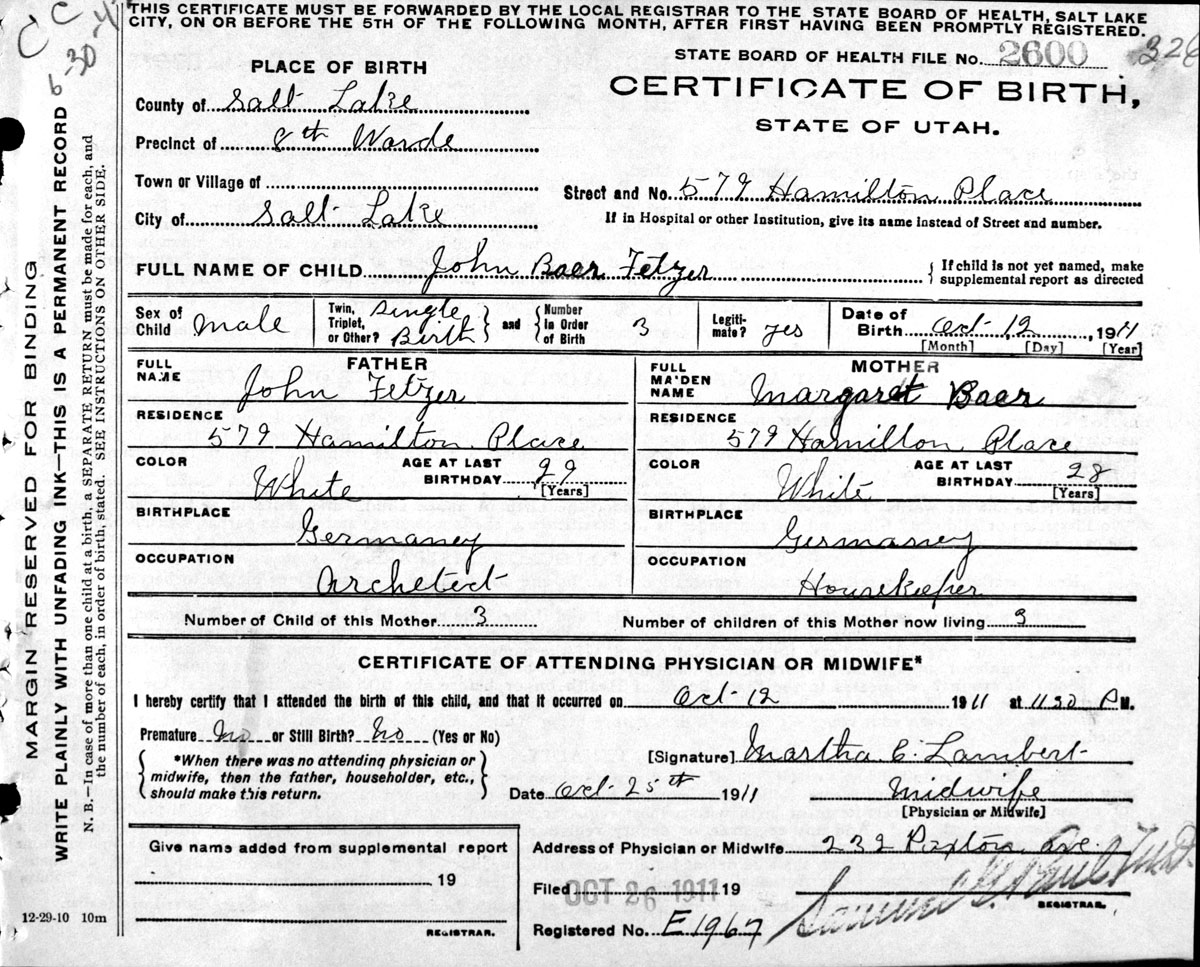 THIS CERTIFICATE MUST BE FORWARDED BY THE LOCAL REGISTRAR TO THE STATE BOARD OF HEALTH, SALT LAKE
CITY, ON OR BEFORE THE 5TH OF THE FOLLOWING MONTH, AFTER FIRST HAVING BEEN PROMPTLY REGISTERED.
C C
6-30-4
MARGIN RESERVED FOR BINDING
WRITE PLAINLY WITH UNFADING INK—THIS IS A PERMANENT RECORD
N. B.—In case of more than one child at a birth, a SEPARATE RETURN must be made for each, and
the number of each, in order of birth, stated. SEE INSTRUCTIONS ON OTHER SIDE.
STATE BOARD OF HEALTH FILE No. 2600 326
PLACE OF BIRTH
CERTIFICATE OF BIRTH,
STATE OF UTAH.
County of Salt Lake
Precinct of 8th Warde
Town or Village of
Street and No. 579 Hamilton Place
City of Salt Lake
If in Hospital or other Institution, give its name instead of Street and number.
FULL NAME OF CHILD John Baer Fetzer
If child is not yet named, make
supplemental report as directed
Sex of Child male
Twin, Triplet, or Other? Single Birth
and Number in Order of Birth 3
Legitimate? yes
Date of Birth Oct-12, 1911
[Month] [Day] [Year]
FATHER
FULL NAME John Fetzer
RESIDENCE 579 Hamilton Place
COLOR White AGE AT LAST BIRTHDAY 29 [Years]
BIRTHPLACE Germaney
OCCUPATION Archetect
MOTHER
FULL MAIDEN NAME Margaret Baer
RESIDENCE 579 Hamilton Place
COLOR White AGE AT LAST BIRTHDAY 28 [Years]
BIRTHPLACE Germaney
OCCUPATION Housekeeper
Number of Child of this Mother 3 Number of children of this Mother now living 3
CERTIFICATE OF ATTENDING PHYSICIAN OR MIDWIFE*
I hereby certify that I attended the birth of this child, and that it occurred on Oct-12 1911 at 1130 P M.
Premature No or Still Birth? No (Yes or No)
*When there was no attending physician or
midwife, then the father, householder, etc.,
should make this return.
[Signature] Martha C. Lambert
Date Oct-25th 1911 Midwife
[Physician or Midwife]
Give name added from supplemental report
19
REGISTRAR.
12-29-10 10m
Address of Physician or Midwife 232 Paxton Ave.
Filed OCT 26 1911 19
Samuel G. Paul
REGISTRAR.
Registered No. E1967